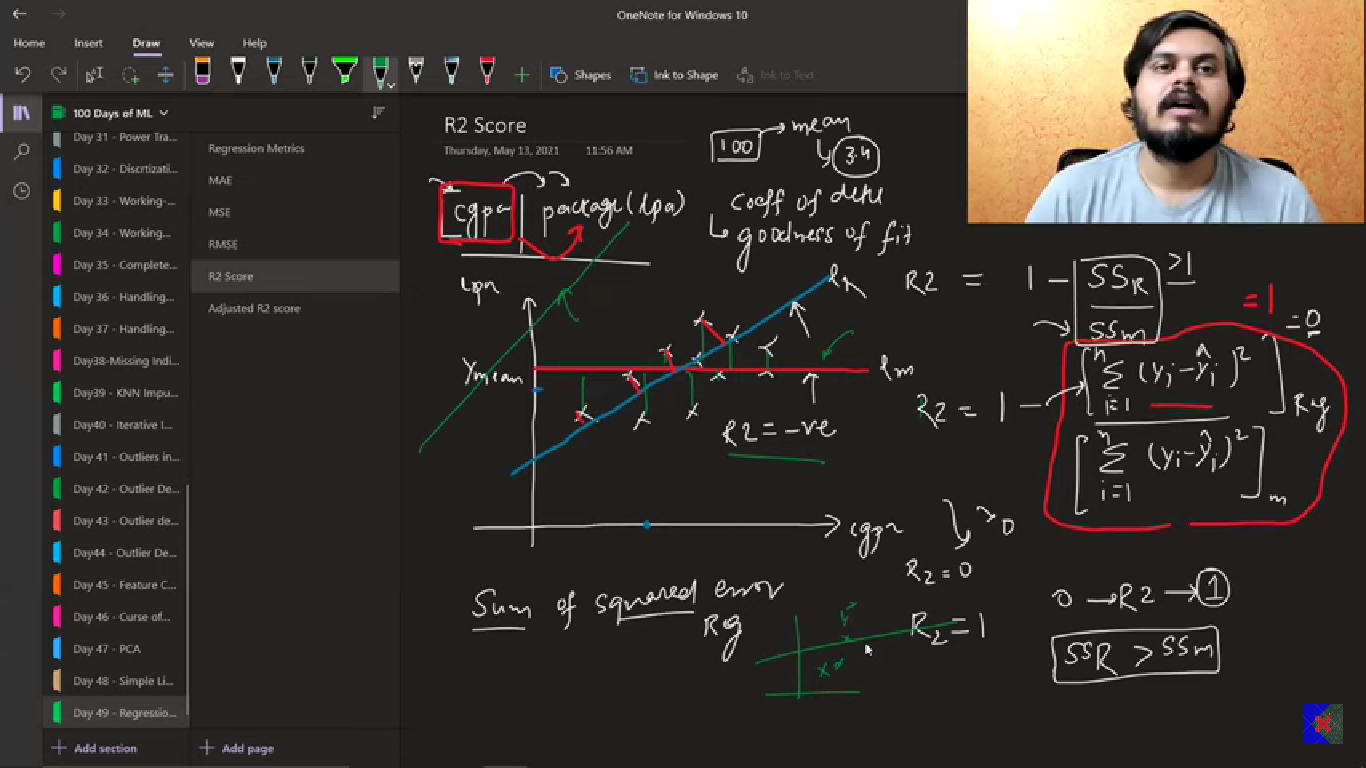 OneNote for Windows 10
Home Insert Draw View Help
Shapes Ink to Shape Ink to Text
100 Days of ML
Day 31 - Power Tra...
Day 32 - Discrtizati...
Day 33 - Working-...
Day 34 - Working...
Day 35 - Complete...
Day 36 - Handling...
Day 37 - Handling...
Day38-Missing Indi...
Day39 - KNN Impu...
Day40 - Iterative I...
Day 41 - Outliers in...
Day 42 - Outlier De...
Day 43 - Outlier de...
Day44 - Outlier De...
Day 45 - Feature C...
Day 46 - Curse of...
Day 47 - PCA
Day 48 - Simple Li...
Day 49 - Regressio...
Add section
Regression Metrics
MAE
MSE
RMSE
R2 Score
Adjusted R2 score
Add page
R2 Score
Thursday, May 13, 2021 11:56 AM
100 → mean
3.4
cgpa | package (lpa)
coeff of
↳ goodness of fit
lpa
Ymean
lm
R2 = -ve
cgpa
R2 = 1 - SSR / SSm >1
= 1
= 0
R2 = 1 - [∑ i=1 n (yi-ŷi)²] Reg
[∑ i=1 n (yi-ŷi)²] m
0
R2=0
R2=1
Sum of squared error
Reg
0 → R2 → 1
SSR > SSm